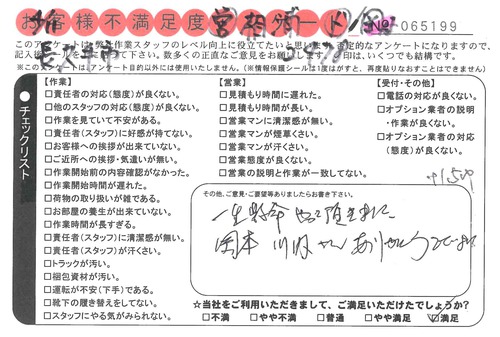 お客様不満足度
No. 065199
このアンケートは弊社作業スタッフのレベル向上に役立てたいと思います。否定的なアンケートになりますので、
数多くの正直なご意見をお聞かせ下さい。
いくつでも結構です。
(※このアンケートはアンケート目的以外には使用いたしません。(※情報保護シールは1度はがすと、再度貼りなおすことはできません)
チェックリスト
【作業】
□責任者の対応(態度)が良くない。
□他のスタッフの対応(態度)が良くない。
□作業を見ていて不安がある。
□責任者(スタッフ)に好感が持てない。
□お客様への挨拶が出来ていない。
□ご近所への挨拶・気遣いが無い。
□作業開始前の内容確認がなかった。
□作業開始時間が遅れた。
□荷物の取り扱いが雑である。
□お部屋の養生が出来ていない。
□作業時間が長すぎる。
□責任者(スタッフ)に清潔感が無い。
□責任者(スタッフ)が汗くさい。
□トラックが汚い。
□梱包資材が汚い。
□運転が不安(下手)である。
□靴下の履き替えをしてない。
□スタッフにやる気がみられない。
【営業】
□見積もり時間に遅れた。
□見積もり時間が長い。
□営業マンに清潔感が無い。
□営業マンが煙草くさい。
□営業マンが汗くさい。
□営業態度が良くない。
□営業の説明と作業が一致してない。
【受付・その他】
□電話の対応が良くない。
□オプション業者の説明
・作業が良くない。
□オプション業者の対応
(態度)が良くない。
その他、ご意見・ご要望等ありましたらお書き下さい。
一生懸命やって頂きました
岡本 川股さん ありがとうございました
☆当社をご利用いただきまして、ご満足いただけたでしょうか?
□不満 □やや不満 □普通 □やや満足 ☑満足